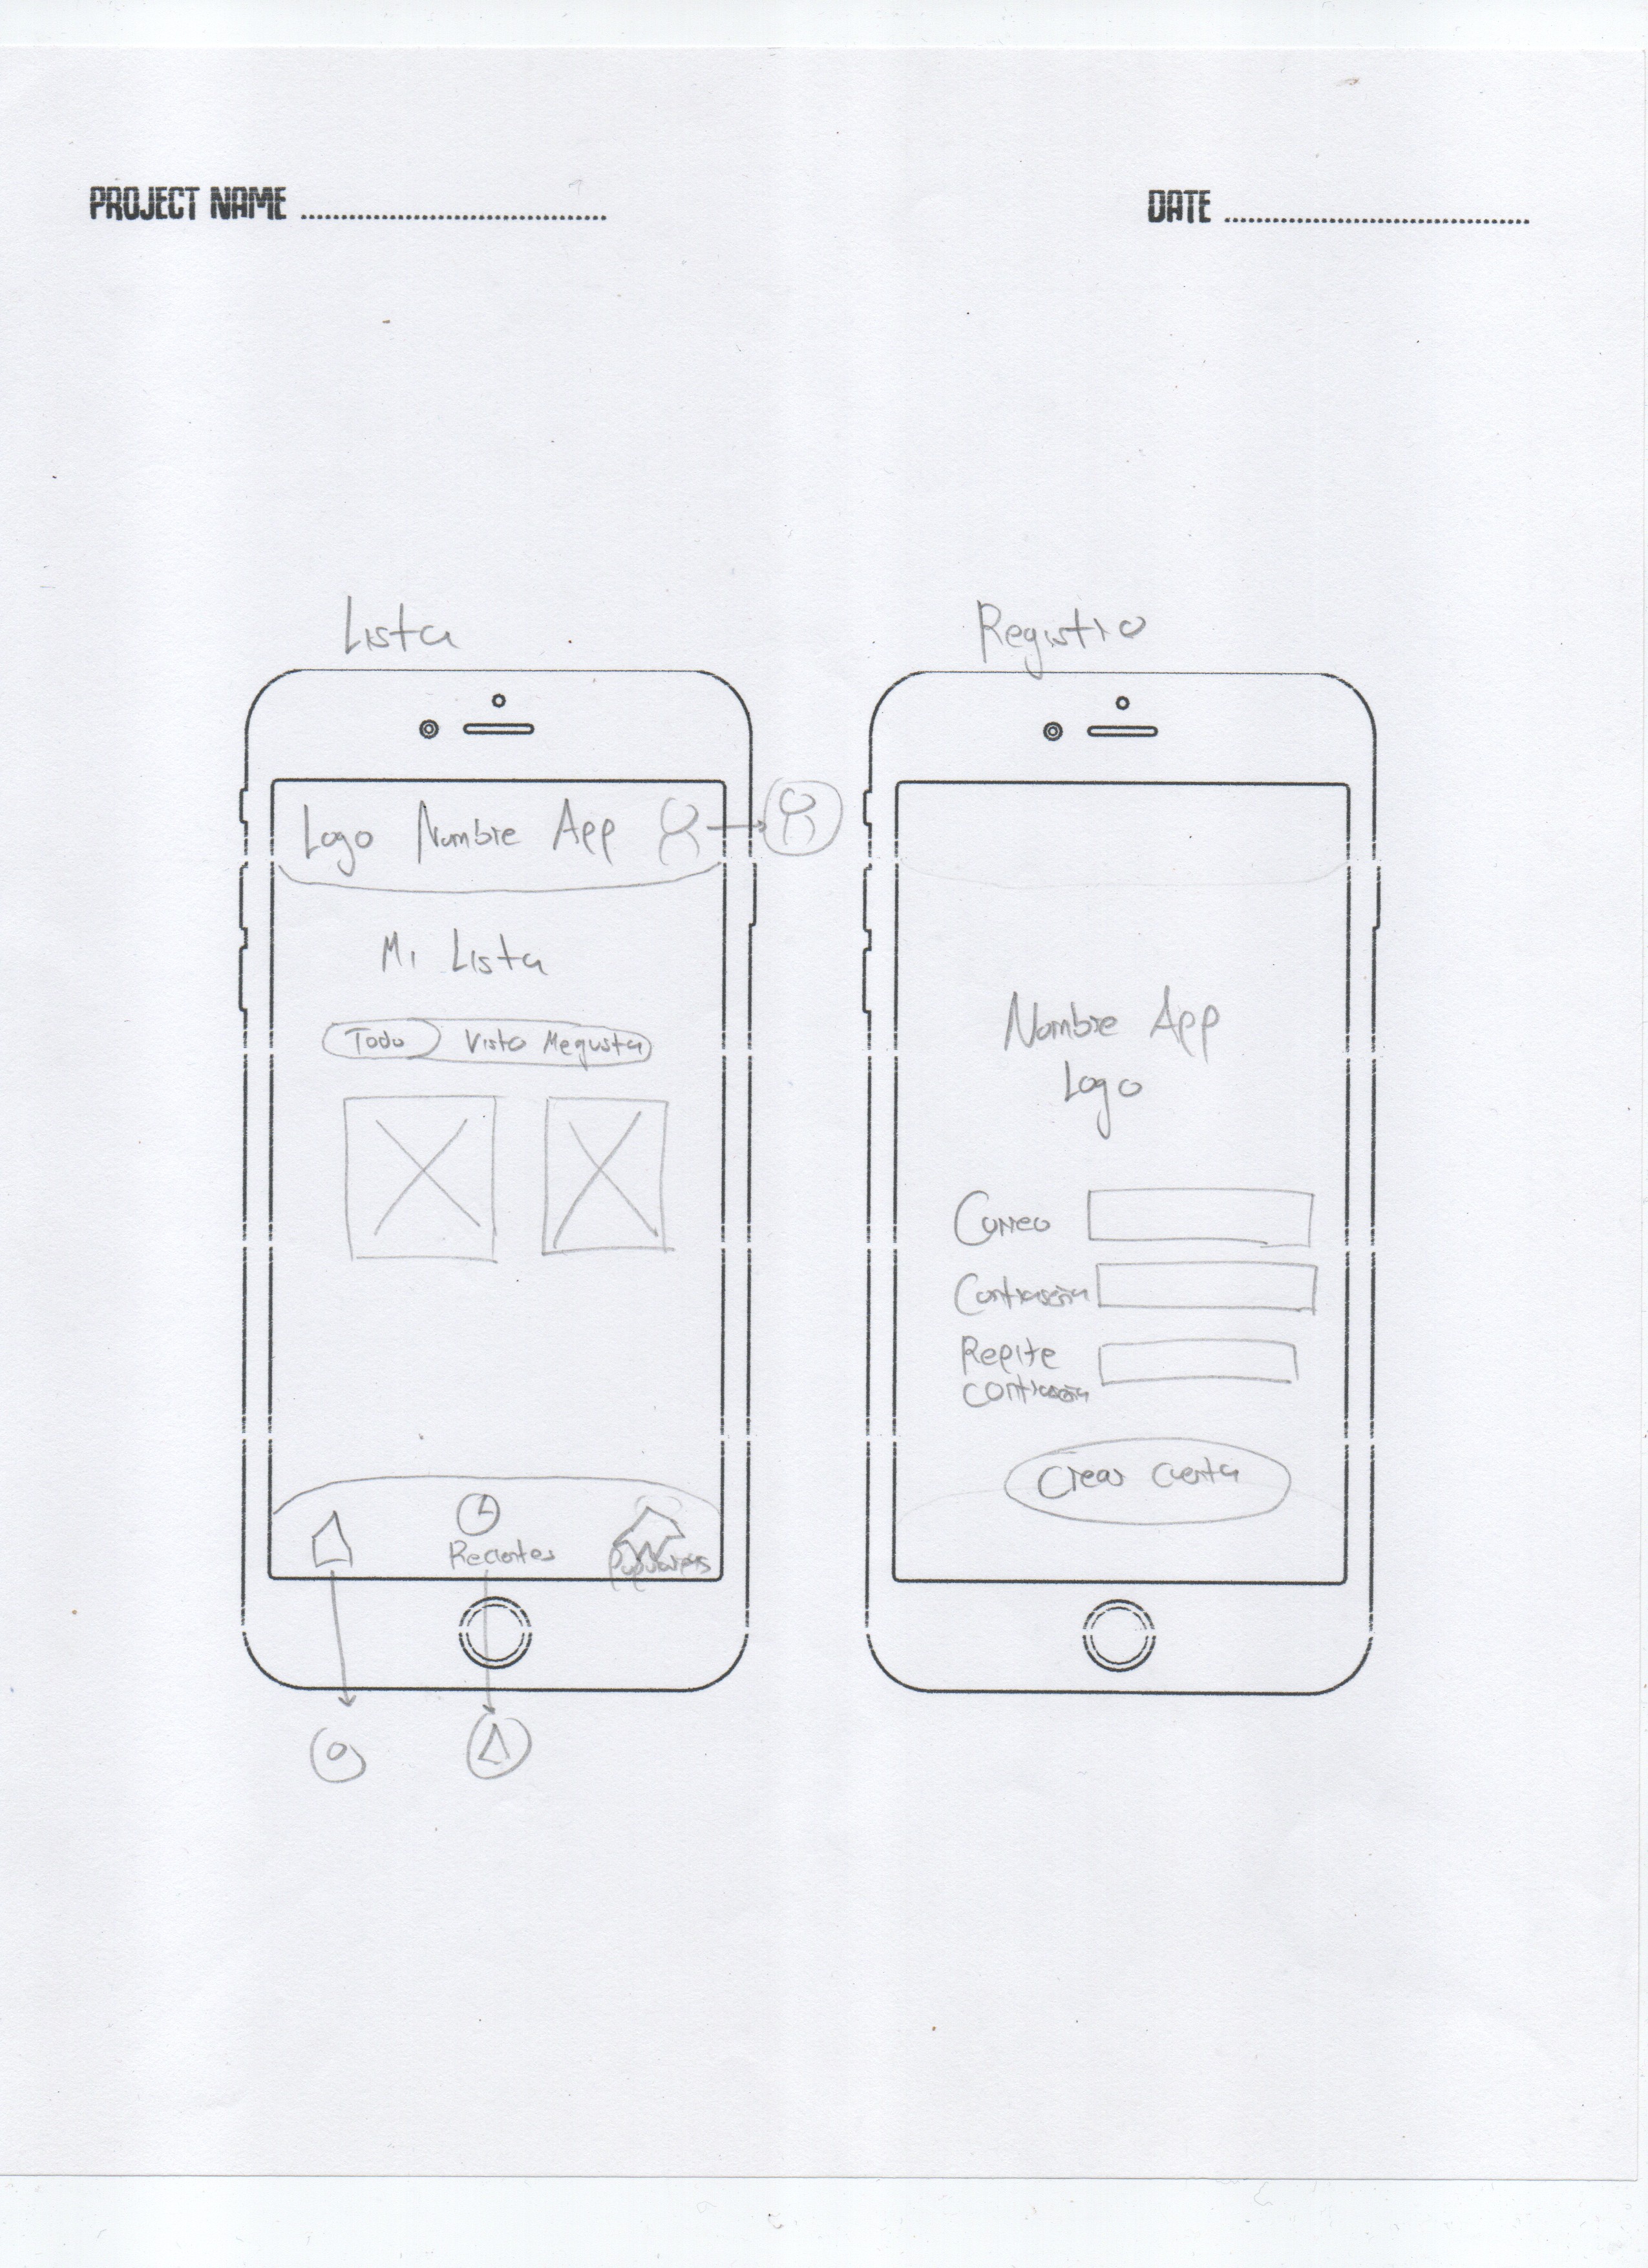 PROJECT NAME
DATE
Lista
Registro
Logo Nombre App
Mi Lista
Todo Visto Megusta
Recientes
Populares
Nombre App
Logo
Correo
Contraseña
Repite
contraseña
Crear cuenta